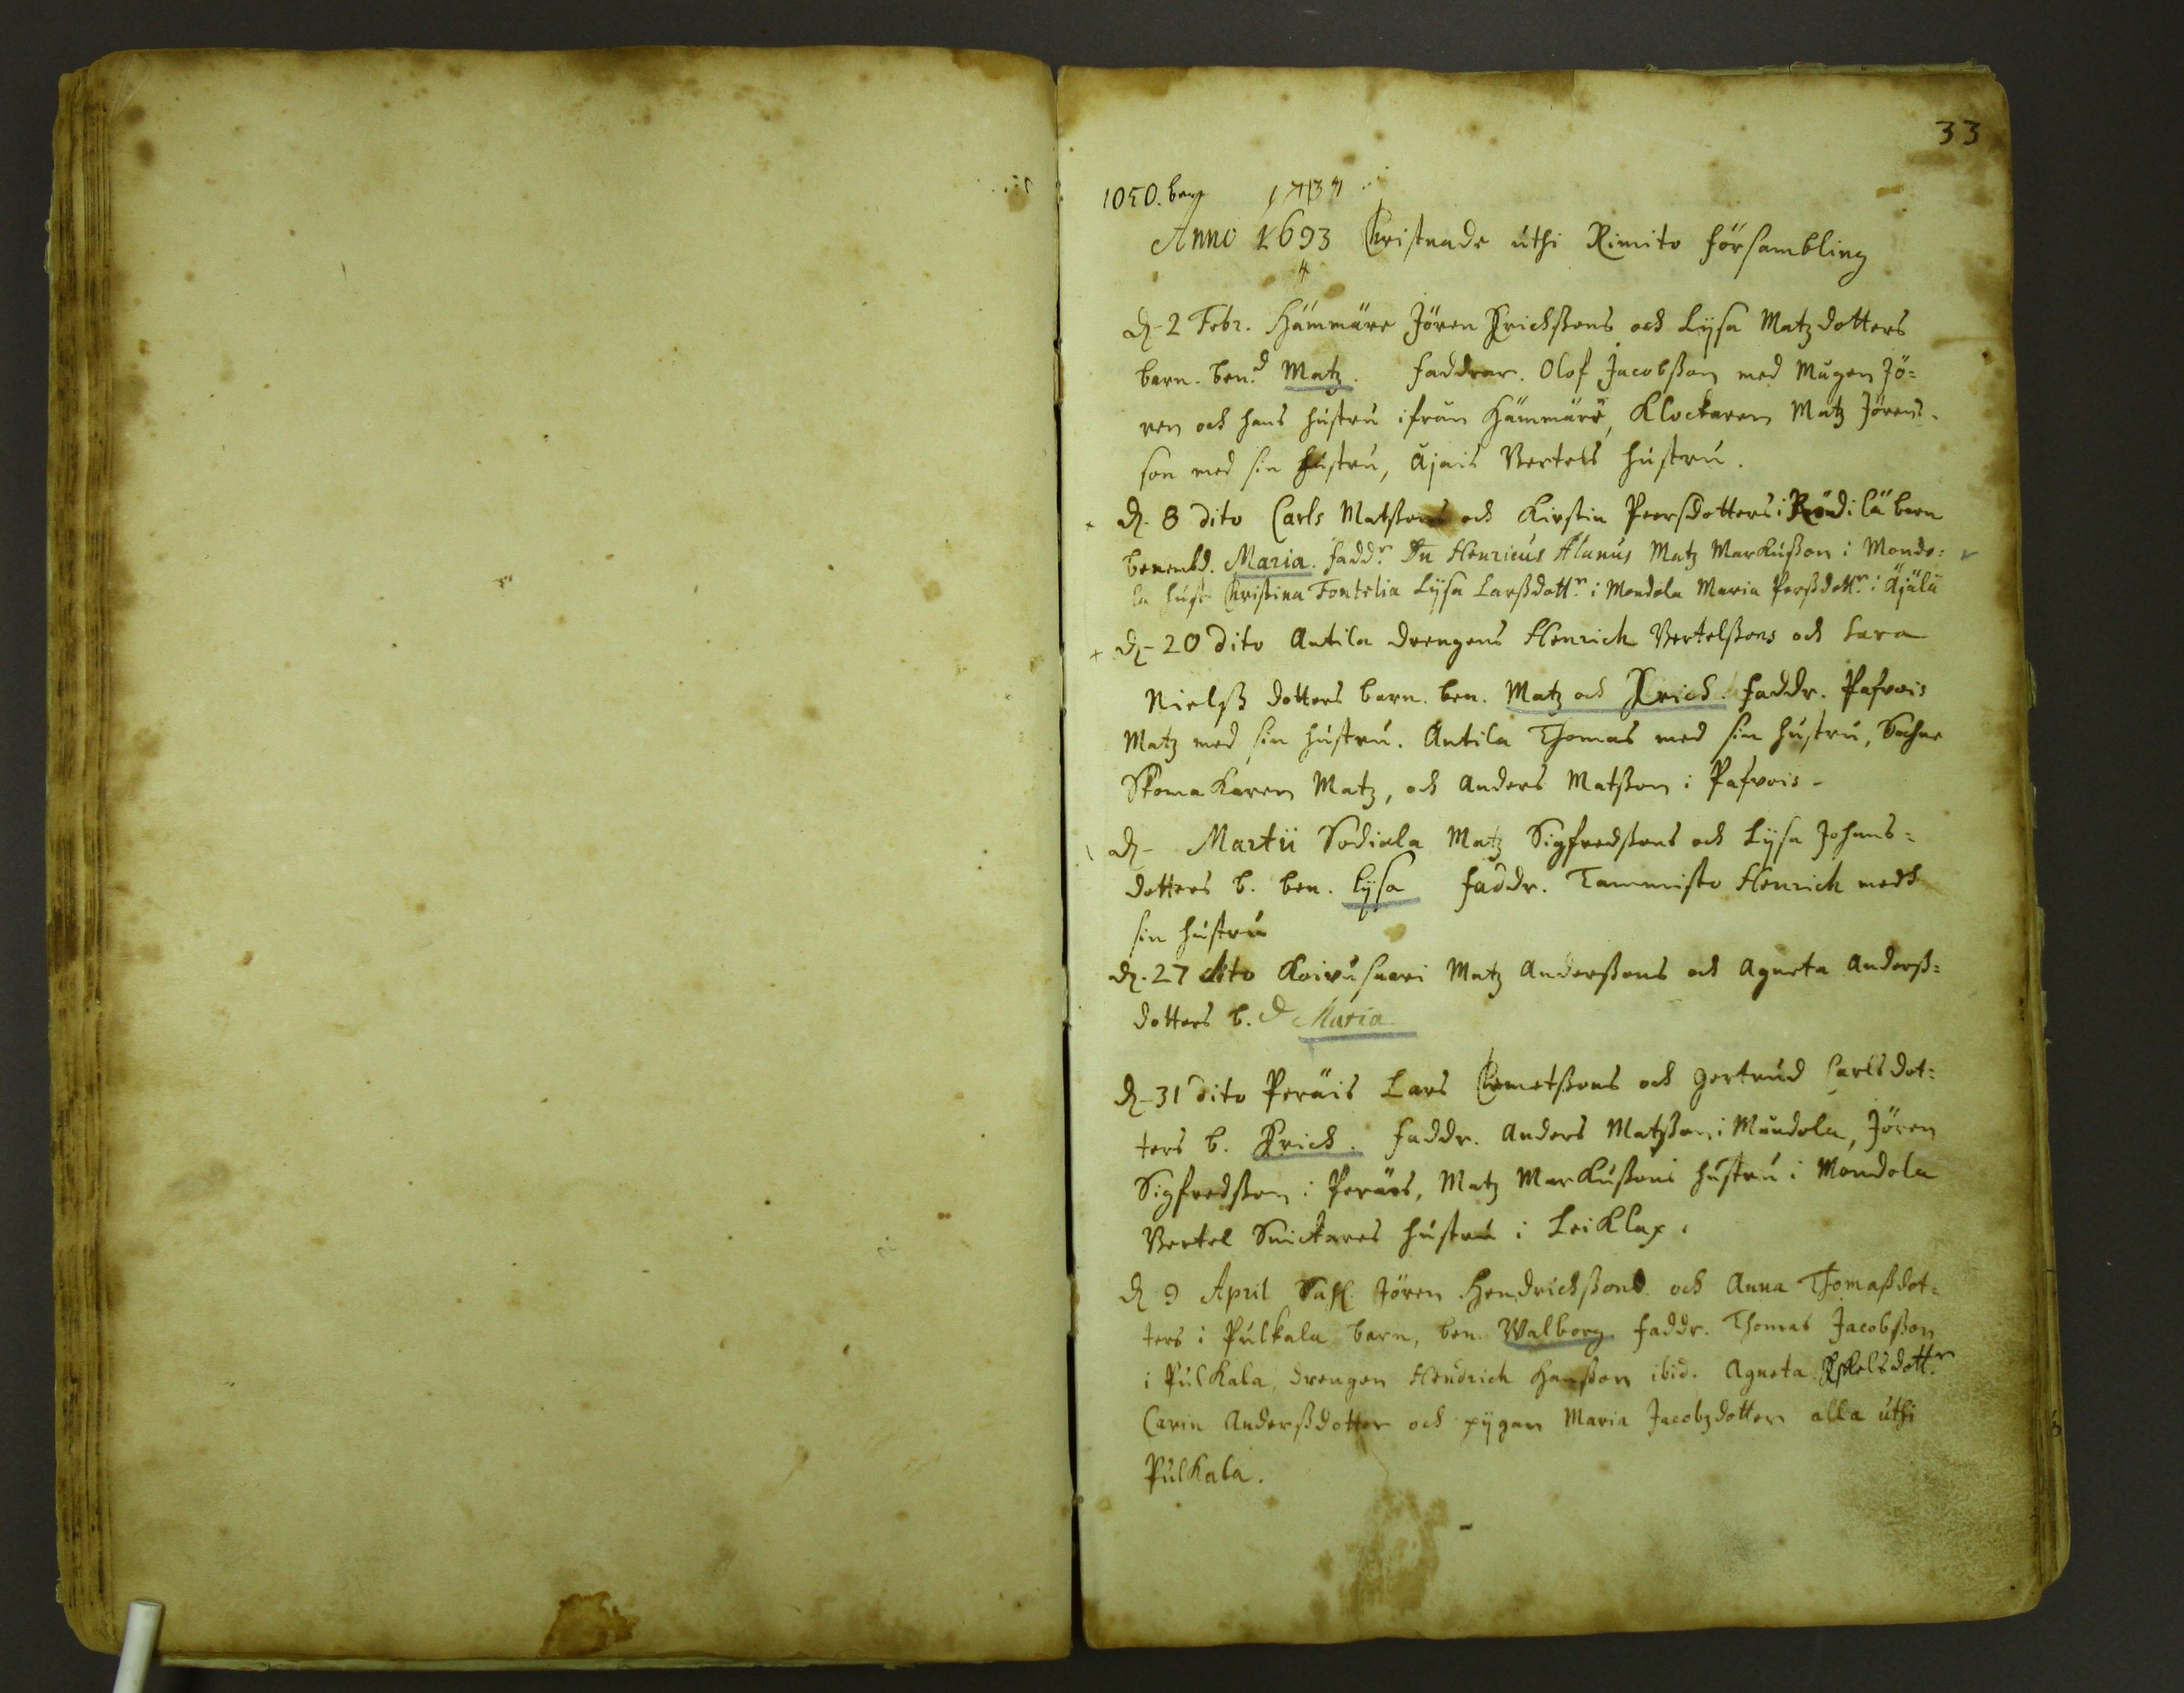 33
1050. barn
Anno 1693 Christnade uthi Rimito försambling
4
D. 2 Febr. Hämmäre Jören Erichssons och Lijsa Matzdotters
barn. ben.d Matz. Faddrar. Olof Jacobsson med Mågen Jö=
ren och hans hustru ifrån Hämmäre, Klockaren Matz Jörens
son med sin hustru, Äjais Bertels hustru.
D. 8 dito Carls Matssons och Kirstin Peersdotters i Röödilä barn
benembd. Maria. fadd.r Dn Henricus Alanus Matz Markusson i Mondo=
la hust. Christina Fontelia Lijsa Larssdott.r i Mondola Maria Perssdott.r i Äjälä
D. 20 dito Antila drengens Henrich Bertelssons och Sara
Nielss dotters barn. ben. Matz och Erich. faddr. Pafvois
Matz med sin hustru. Antila Thomas med sin hustru,
Skomakaren Matz, och Anders Matsson i Pafvois.
D. Martii Sodiala Matz Sigfredssons och Lijsa Johans=
dotters b. ben. Lijsa faddr. Tammisto Henrich medh
sin hustru
D. 27 dito Koivusaari Matz Anderssons och Agneta Anderss=
dotters b. d Maria
D. 31 dito Peräis Lars Clemetssons och Gertrud Carlsdot=
ters b. Erich. faddr. Anders Matsson i Mundola, Jören
Sigfredsson i Peräis, Matz Markussons hustru i Mondola
Bertel Snickares hustru i Leiklax.
D 9 April Sahl. Jören Hendrichssons och Anna Thomassdot=
ters i Pulkala barn, ben. Walborg. faddr. Thomas Jacobsson
i Pulkala, drengen Hendrich Hansson ibid. Agneta Eskelsdott.r
Carin Anderssdotter och pijgan Maria Jacobzdotter alla uthi
Pulkala.